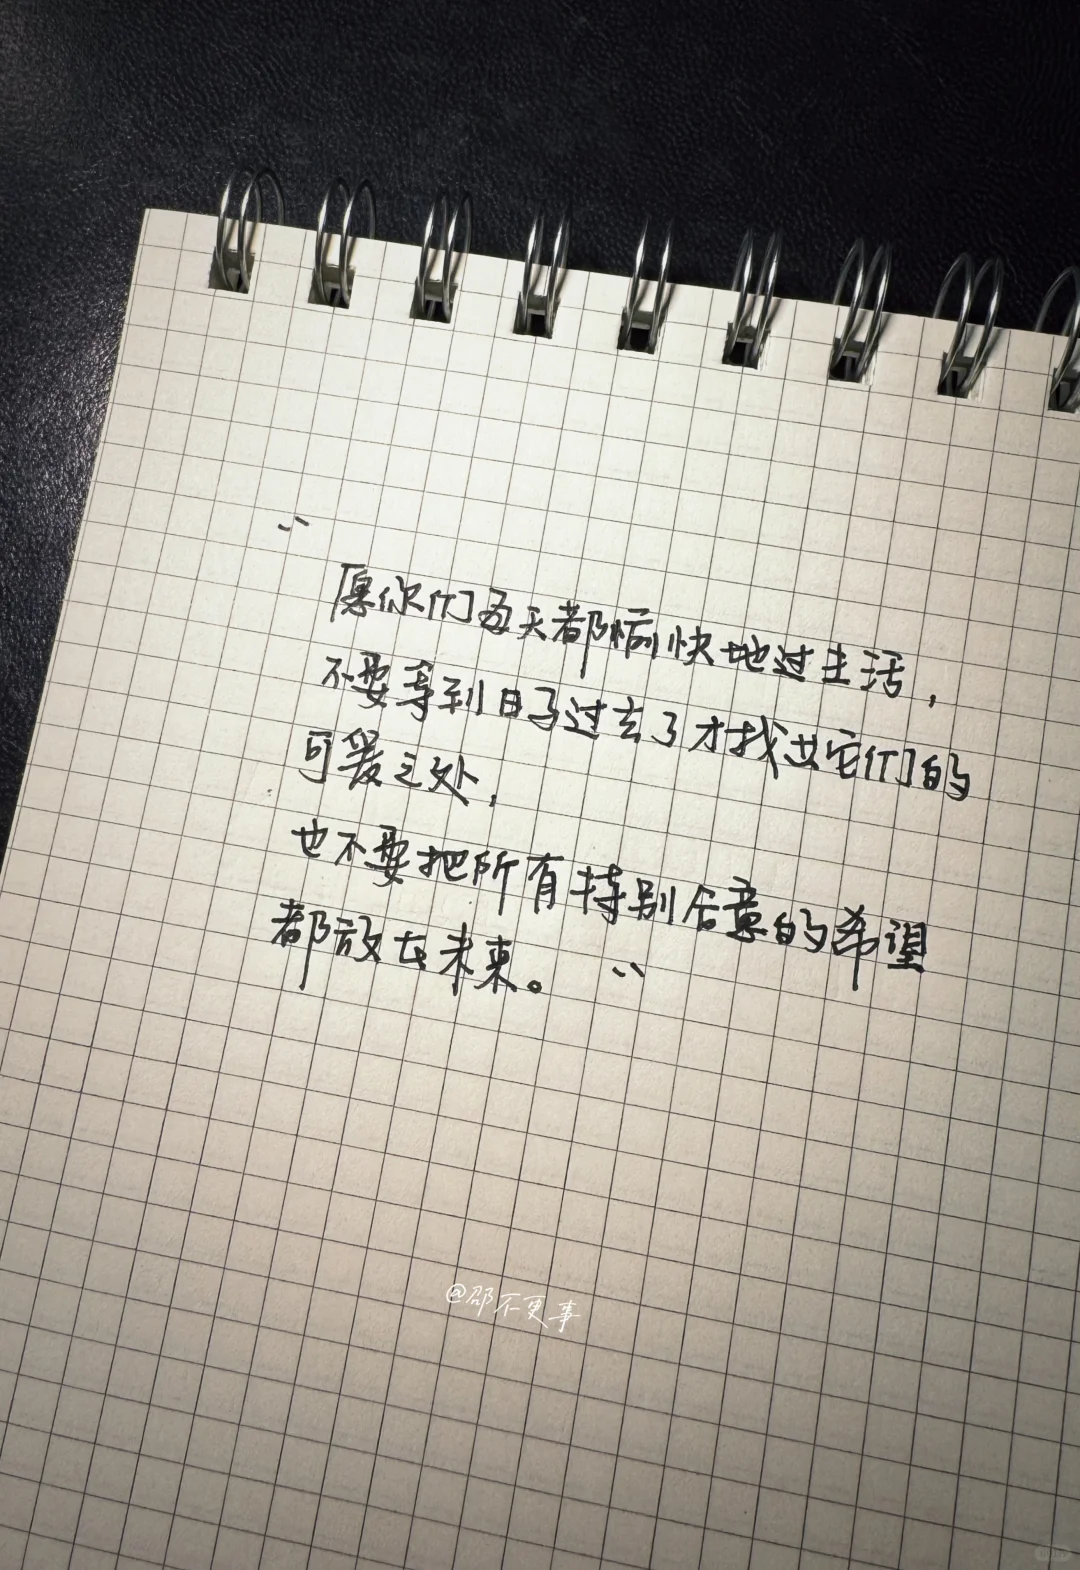 “
愿你们每天都愉快地过生活，
不要等到日子过去了才找出它们的
可爱之处，
也不要把所有特别合意的希望
都放在未来。 ”
@邵不更事